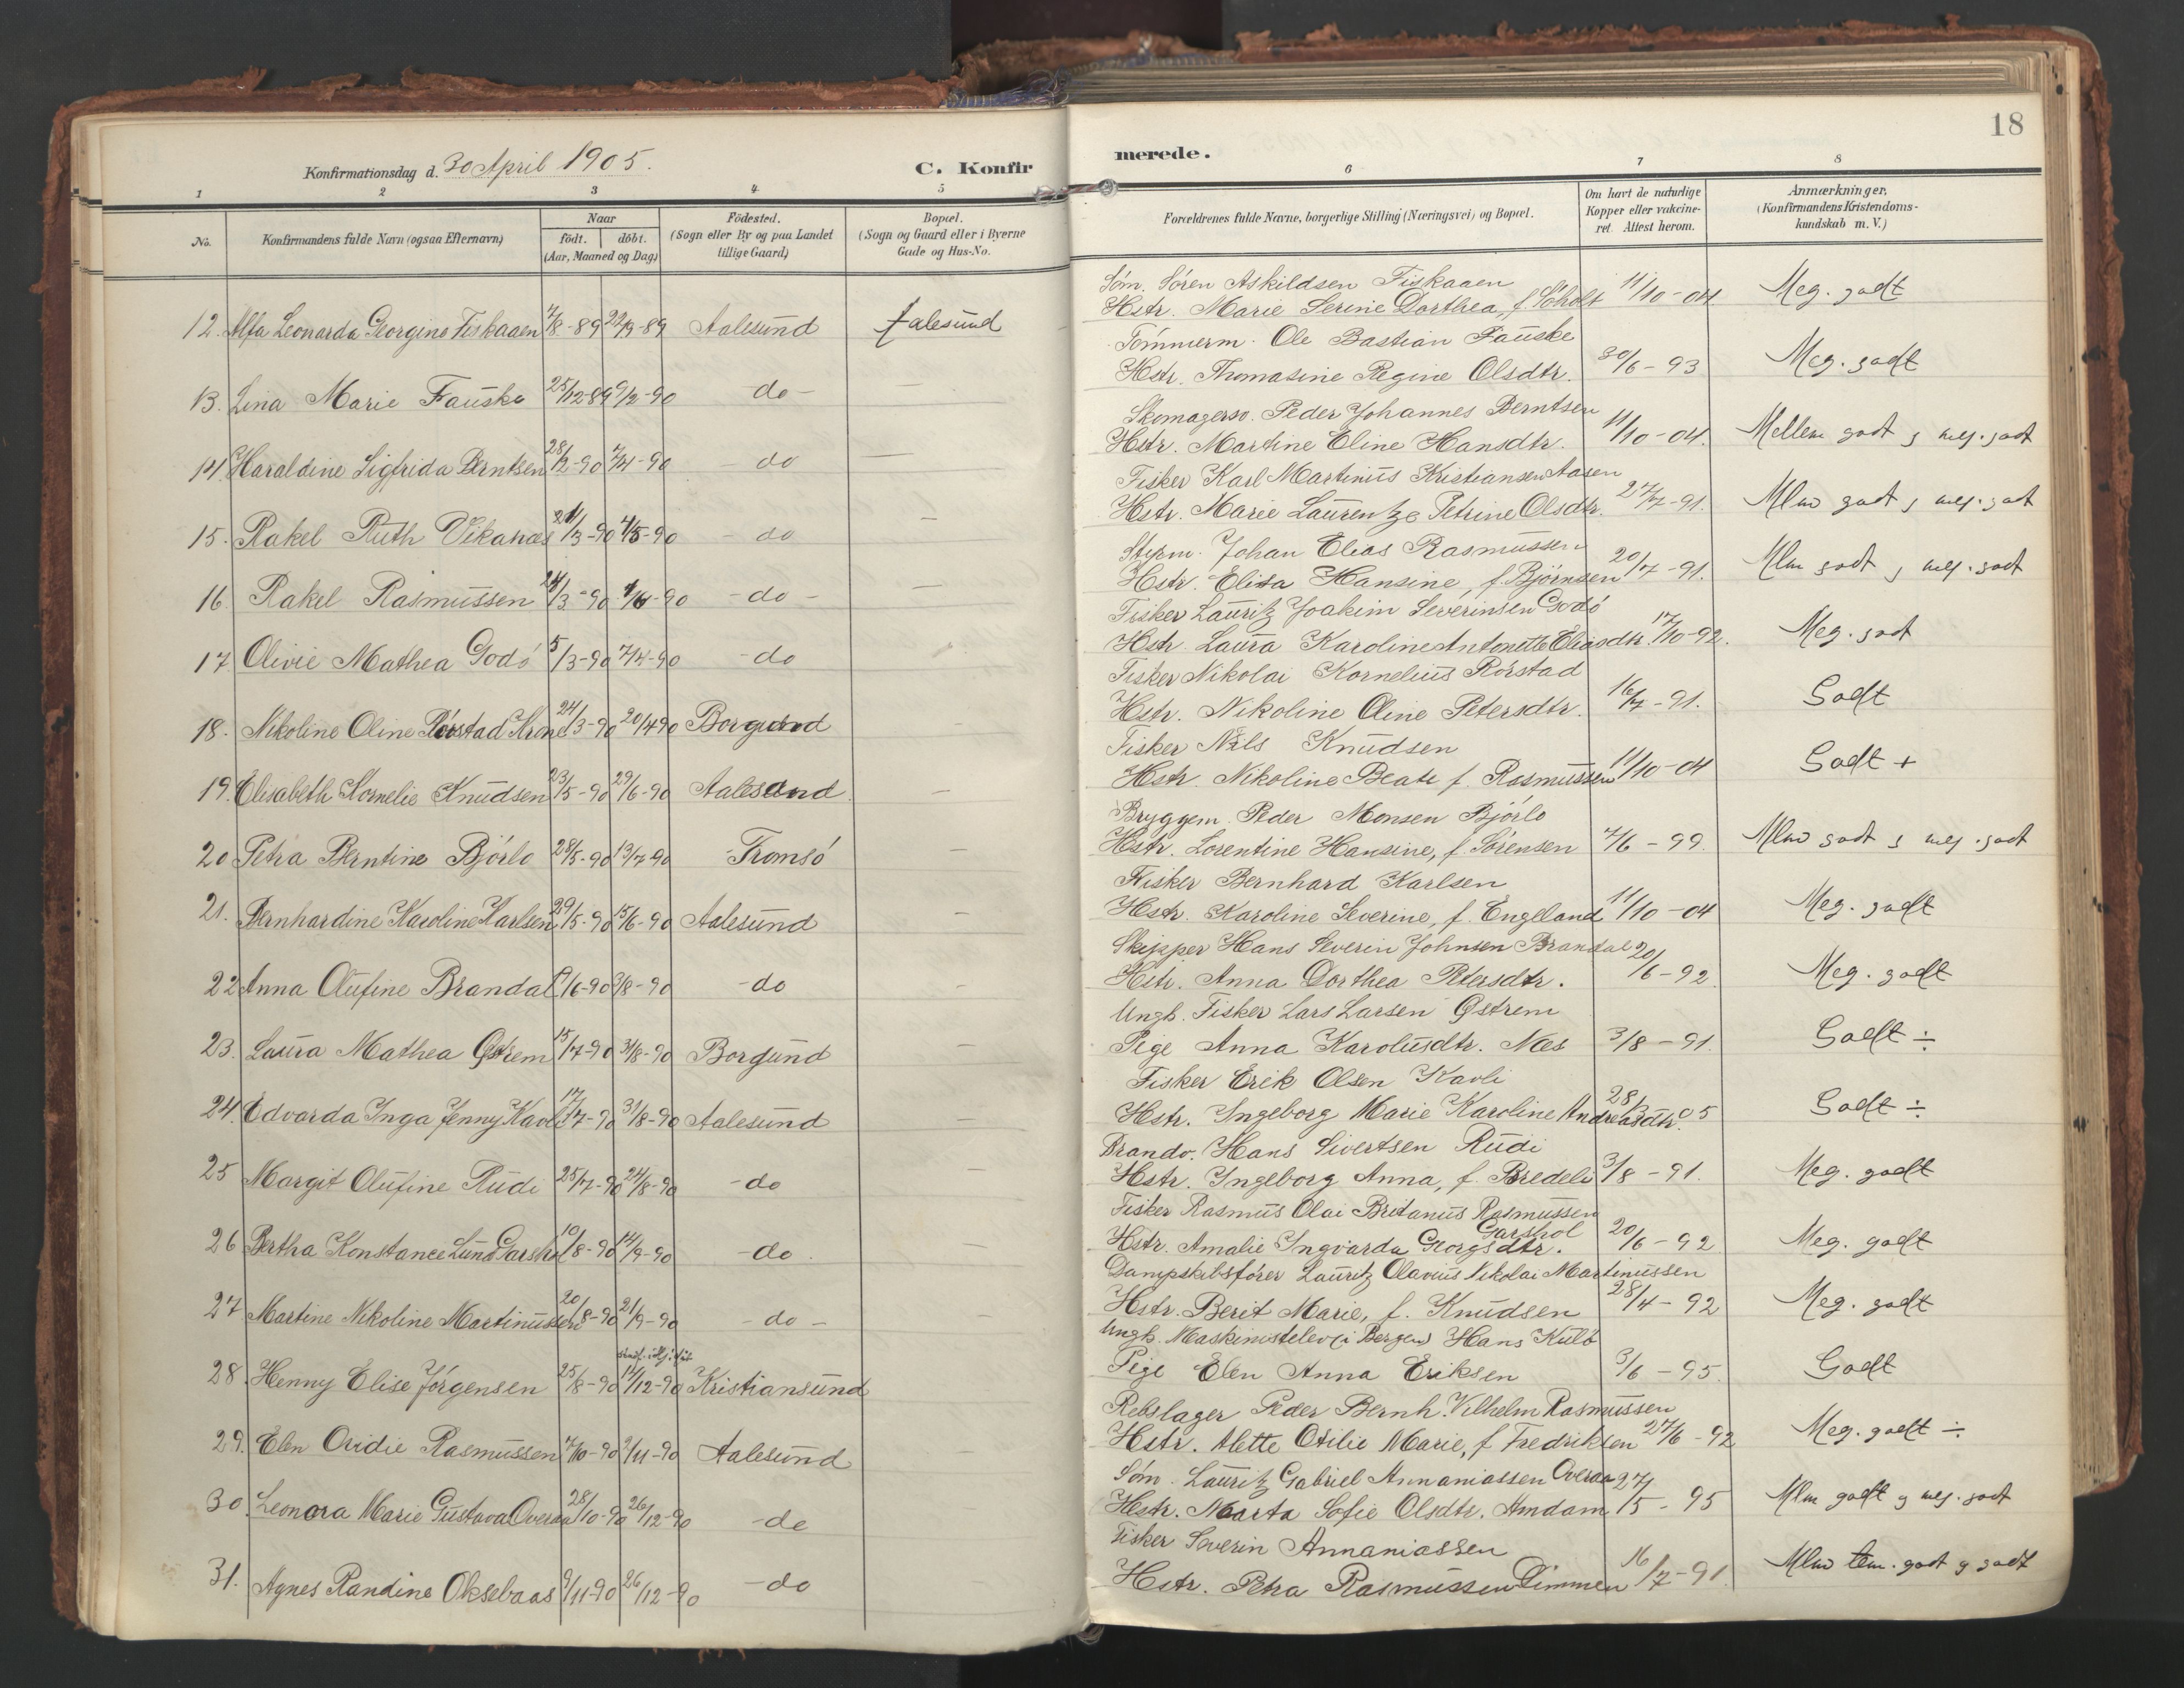 18
Konfirmationsdag d. 30 April 1905.
C. Konfirmerede.
1 2 3 4 5 6 7 8
No.
Konfirmandens fulde Navn (ogsaa Efternavn)
Naar
födt. döbt.
(Aar, Maaned og Dag)
Födested.
(Sogn eller By og paa Landet
tillige Gaard)
Bopæl.
(Sogn og Gaard eller i Byerne
Gade og Hus-No.
Forældrenes fulde Navne, borgerlige Stilling (Næringsvei) og Bopæl.
Om havt de naturlige
Kopper eller vakcine-
ret. Attest herom.
Anmærkninger,
(Konfirmandens Kristendoms-
kundskab m. V.)
Søm. Sören Askildsen Fiskaaen
12. Alfa Leonarda Georgine Fiskaaen 7/8-89 22/9-89 Aalesund Aalesund Hstr. Marie Serine Dorthea, f. Söholt 11/10-04 Meg. godt
Tömmerm. Ole Bastian Fauske
13. Lina Marie Fauske 25/12-89 9/2-90 -do- Hstr. Thomasine Regine Olsdtr. 30/6-93 Meg. godt
Skomagersv. Peder Johannes Berntsen
14. Haraldine Sigfrida Berntsen 28/2-90 7/4-90 do Hstr. Martine Eline Hansdtr. 11/10-04 Mellem godt og meg. godt
Fisker Karl Martinus Kristiansen Aasen
15. Rakel Ruth Vikanæs 21/3-90 4/5-90 - do Hstr. Marie Laurentze Petrine Olsdtr. 27/7-91. Mlm godt og meg. godt
Styrm. Johan Elias Rasmussen
16. Rakel Rasmussen 24/3-90 -do- Hstr. Elisa Hansine, f. Björnsen 20/7-91. Mlm godt og meg. godt
Fisker Lauritz Joakim Severinsen Godö
17. Olivie Mathea Godö 5/3-90 7/4-90 -do Hstr. Laura Karoline Antonette Eliasdtr. 17/10-92. Meg. godt
Fisker Nikolai Kornelius Rörstad
18. Nikoline Oline Rörstad Krone 24/3-90 20/4 90 Borgund Hstr. Nikoline Oline Petersdtr. 16/7-91. Godt
Fisker Nils Knudsen
19. Elisabeth Kornelie Knudsen 23/5-90 29/6-90 Aalesund Hstr. Nikoline Beate f. Rasmussen 11/10-04 Godt +
Bryggem. Peder Monsen Björlo
20 Petra Berntine Björlo 28/5-90 13/7-90 Tromsö Hstr. Lorentine Hansine, f. Sörensen 7/6-99. Mlm godt og meg. godt
Fisker Bernhard Karlsen
21. Bernhardine Karoline Karlsen 29/5-90 15/6-90 Aalesund Hstr. Karoline Severine, f. Engeland 11/10-04 Meg. godt
Skipper Hans Severin Johnsen Brandal
22 Anna Olufine Brandal 3/8-90 -do Hstr. Anna Dorthea Petersdtr. 20/6-92. Meg. godt
Ungk. Fisker Lars Larsen Östrem
23. Laura Mathea Östrem 15/7-90 31/8-90 Borgund Pige Anna Karolusdtr. Næs 3/8-91. Godt ÷
Fisker Erik Olsen Kavli
24. Edvarda Inga Jenny Kavli 17/7-90 31/8-90 Aalesund Hstr. Ingeborg Marie Karoline Andreasdtr. Godt ÷
Brandv. Hans Sivertsen Rudi
25 Margit Olufine Rudi 25/7-90 24/8-90 -do Hstr. Ingeborg Anna, f. Bredeli 3/8-91. Meg. godt
Fisker Rasmus Olai Britanus Rasmussen Garshol
26 Bertha Konstance Lund Garshol 10/8-90 14/9-90 -do Hstr. Amalie Ingvarda Georgsdtr. 20/6-92 Meg. godt
Dampskibsförer Lauritz Olavus Nikolai Martinussen
27 Martine Nikoline Martinussen 20/8-90 21/9-90 -do- Hstr. Berit Marie, f. Knudsen 28/4-92 Meg. godt
Ungk. Maskinistelev (i Bergen) Hans Kulö
28. Henny Elise Jörgensen 25/8-90 11/12-90 Kristiansund Pige Elen Anna Eriksen 3/6-95. Godt
Rebslager Peder Bernh. Vilhelm Rasmussen
29. Elen Ovidie Rasmussen 7/10-90 9/11-90 Aalesund Hstr. Alette Otilie Marie, f. Fredriksen 27/6-92 Meg. godt ÷
Söm. Lauritz Gabriel Annaniassen Overaa
30. Leonora Marie Gustava Overaa 28/10-90 26/12-90 -do Hstr. Marta Sofie Olsdtr. Amdam 27/5-95 Mlm godt og meg. godt
Fisker Severin Annaniassen
31. Agnes Randine Oksebaas 9/11-90 26/12-90 -do Hstr. Petra Rasmussen Dimmen 16/7-91. Mlm tem. godt og godt